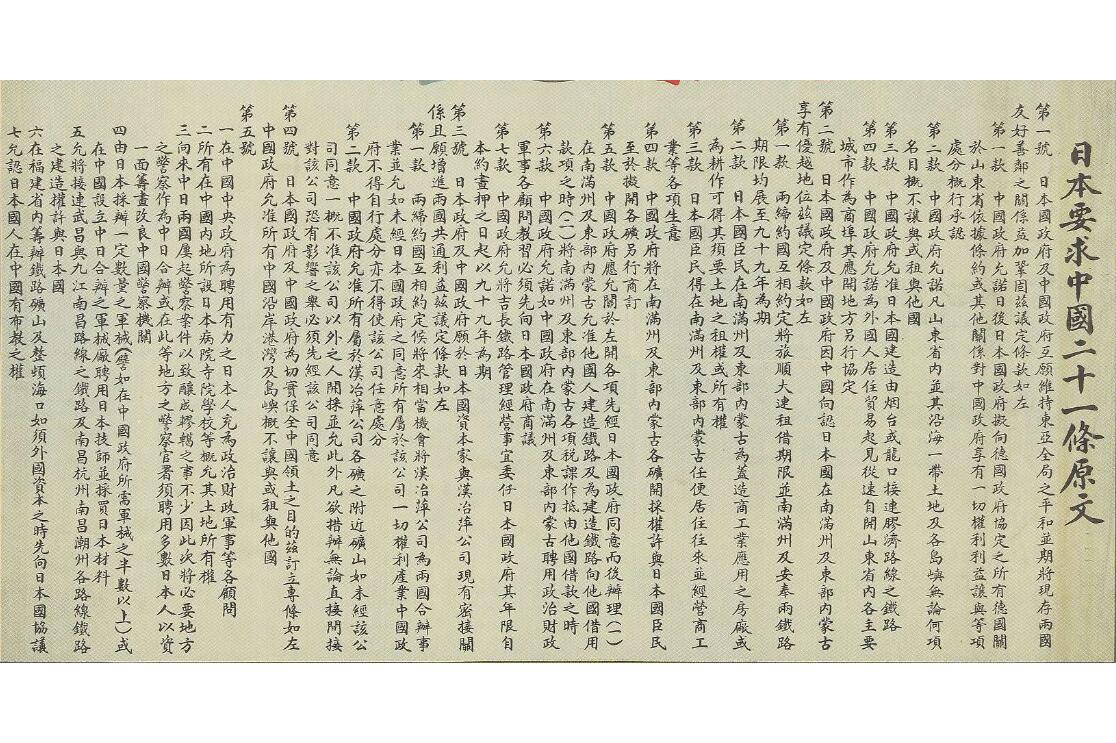 日本要求中國二十一條原文
第一號　日本國政府及中國政府互願維持東亞全局之平和並期將現存兩國
友好善鄰之關係益加鞏固茲議定條款如左
第一款　中國政府允諾日後日本國政府擬向德國政府協定之所有德國關
於山東省依據條約或其他關係對中國政府享有一切權利利益讓與等項
處分概行承認
第二款　中國政府允諾凡山東省內並其沿海一帶土地及各島嶼無論何項
名目概不讓與或租與他國
第三款　中國政府允准日本國建造由烟台或龍口接連膠濟路線之鐵路
第四款　中國政府允諾為外國人居住貿易起見從速自開山東省內各主要
城市作為商埠其應開地方另行協定
第二號　日本國政府及中國政府因中國向認日本國在南滿州及東部內蒙古
享有優越地位茲議定條款如左
第一款　兩締約國互相約定將旅順大連租借期限並南滿州及安奉兩鐵路
期限均展至九十九年為期
第二款　日本國臣民在南滿州及東部內蒙古為蓋造商工業應用之房廠或
為耕作可得其須要土地之租權或所有權
第三款　日本國臣民得在南滿州及東部內蒙古任便居住往來並經營商工
業等各項生意
第四款　中國政府將在南滿州及東部內蒙古各礦開採權許與日本國臣民
至於擬開各礦另行商訂
第五款　中國政府應允關於左開各項先經日本國政府同意而後辦理(一)
在南滿州及東部內蒙古允准他國人建造鐵路及為建造鐵路向他國借用
款項之時(二)將南滿州及東部內蒙古各項稅課作抵由他國借款之時
第六款　中國政府允諾如中國政府在南滿州及東部內蒙古聘用政治財政
軍事各顧問教習必須先向日本國政府商議
第七款　中國政府允將吉長鐵路管理經營事宜委任日本國政府其年限自
本約畫押之日起以九十九年為期
第三號　日本政府及中國政府願於日本國資本家與漢冶萍公司現有密接關
係且願增進兩國共通利益茲議定條款如左
第一款　兩締約國互相約定俟將來相當機會將漢冶萍公司為兩國合辦事
業並允如未經日本國政府之同意所有屬於該公司一切權利產業中國政
府不得自行處分亦不得使該公司任意處分
第二款　中國政府允准所有屬於漢冶萍公司各礦之附近礦山如未經該公
司同意一概不准該公司以外之人開採並允此外凡欲措辦無論直接間接
對該公司恐有影響之舉必須先經該公司同意
第四號　日本國政府及中國政府為切實保全中國領土之目的茲訂立專條如左
中國政府允准所有中國沿岸港灣及島嶼概不讓與或租與他國
第五號
一在中國中央政府為聘用有力之日本人充為政治財政軍事等各顧問
二所有在中國內地所設日本病院寺院學校等概允其土地所有權
三向來中日兩國屢起警察案件以致釀成轇轕之事不少因此次將必要地方
之警察作為中日合辦或在此等地方之警察官署須聘用多數日本人以資
一面籌畫改良中國警察機關
四由日本採辦一定數量之軍械(譬如在中國政府所需軍械之半數以上)或
在中國設立中日合辦之軍械廠聘用日本技師並採買日本材料
五允將接連武昌與九江南昌路線之鐵路及南昌杭州南昌潮州各路線鐵路
之建造權許與日本國
六在福建省內籌辦鐵路礦山及整頓海口如須外國資本之時先向日本國協議
七允認日本國人在中國有布教之權